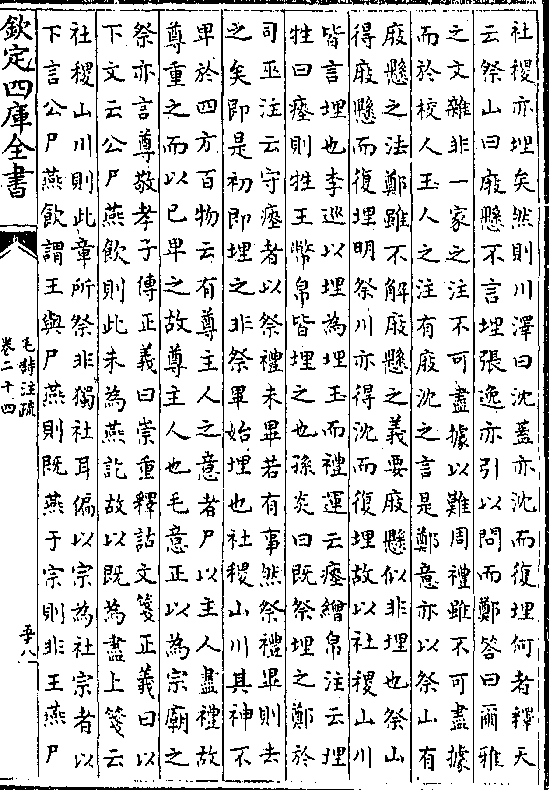 社稷亦埋矣然則川澤曰沈蓋亦沈而復埋何者釋天
云祭山曰庪懸不言埋張逸亦引以問而鄭答曰爾雅
之文雜非一家之注不可盡據以難周禮雖不可盡據
而於校人玉人之注有庪沈之言是鄭意亦以祭山有
庪懸之法鄭雖不解庪懸之義要庪懸似非埋也祭山
得庪懸而復埋明祭川亦得沈而復埋故以社稷山川
皆言埋也李巡以埋為埋玉而禮運云瘞繒帛注云埋
牲曰瘞則牲玉幣帛皆埋之也孫炎曰既祭埋之鄭於
司巫注云守瘞者以祭禮未畢若有事然祭禮畢則去
之矣即是初即埋之非祭畢始埋也社稷山川其神不
卑於四方百物云有尊主人之意者尸以主人盡禮故
尊重之而以已卑之故尊主人也毛意正以為宗廟之
祭亦言尊敬孝子傳正義曰崇重釋詁文箋正義曰以
下文云公尸燕飲則此未為燕訖故以既為盡上箋云
社稷山川則此章所祭非獨社耳偏以宗為社宗者以
下言公尸燕飲謂王與尸燕則既燕于宗則非王燕尸
欽定四庫全書
毛詩注疏
卷二十四
五八